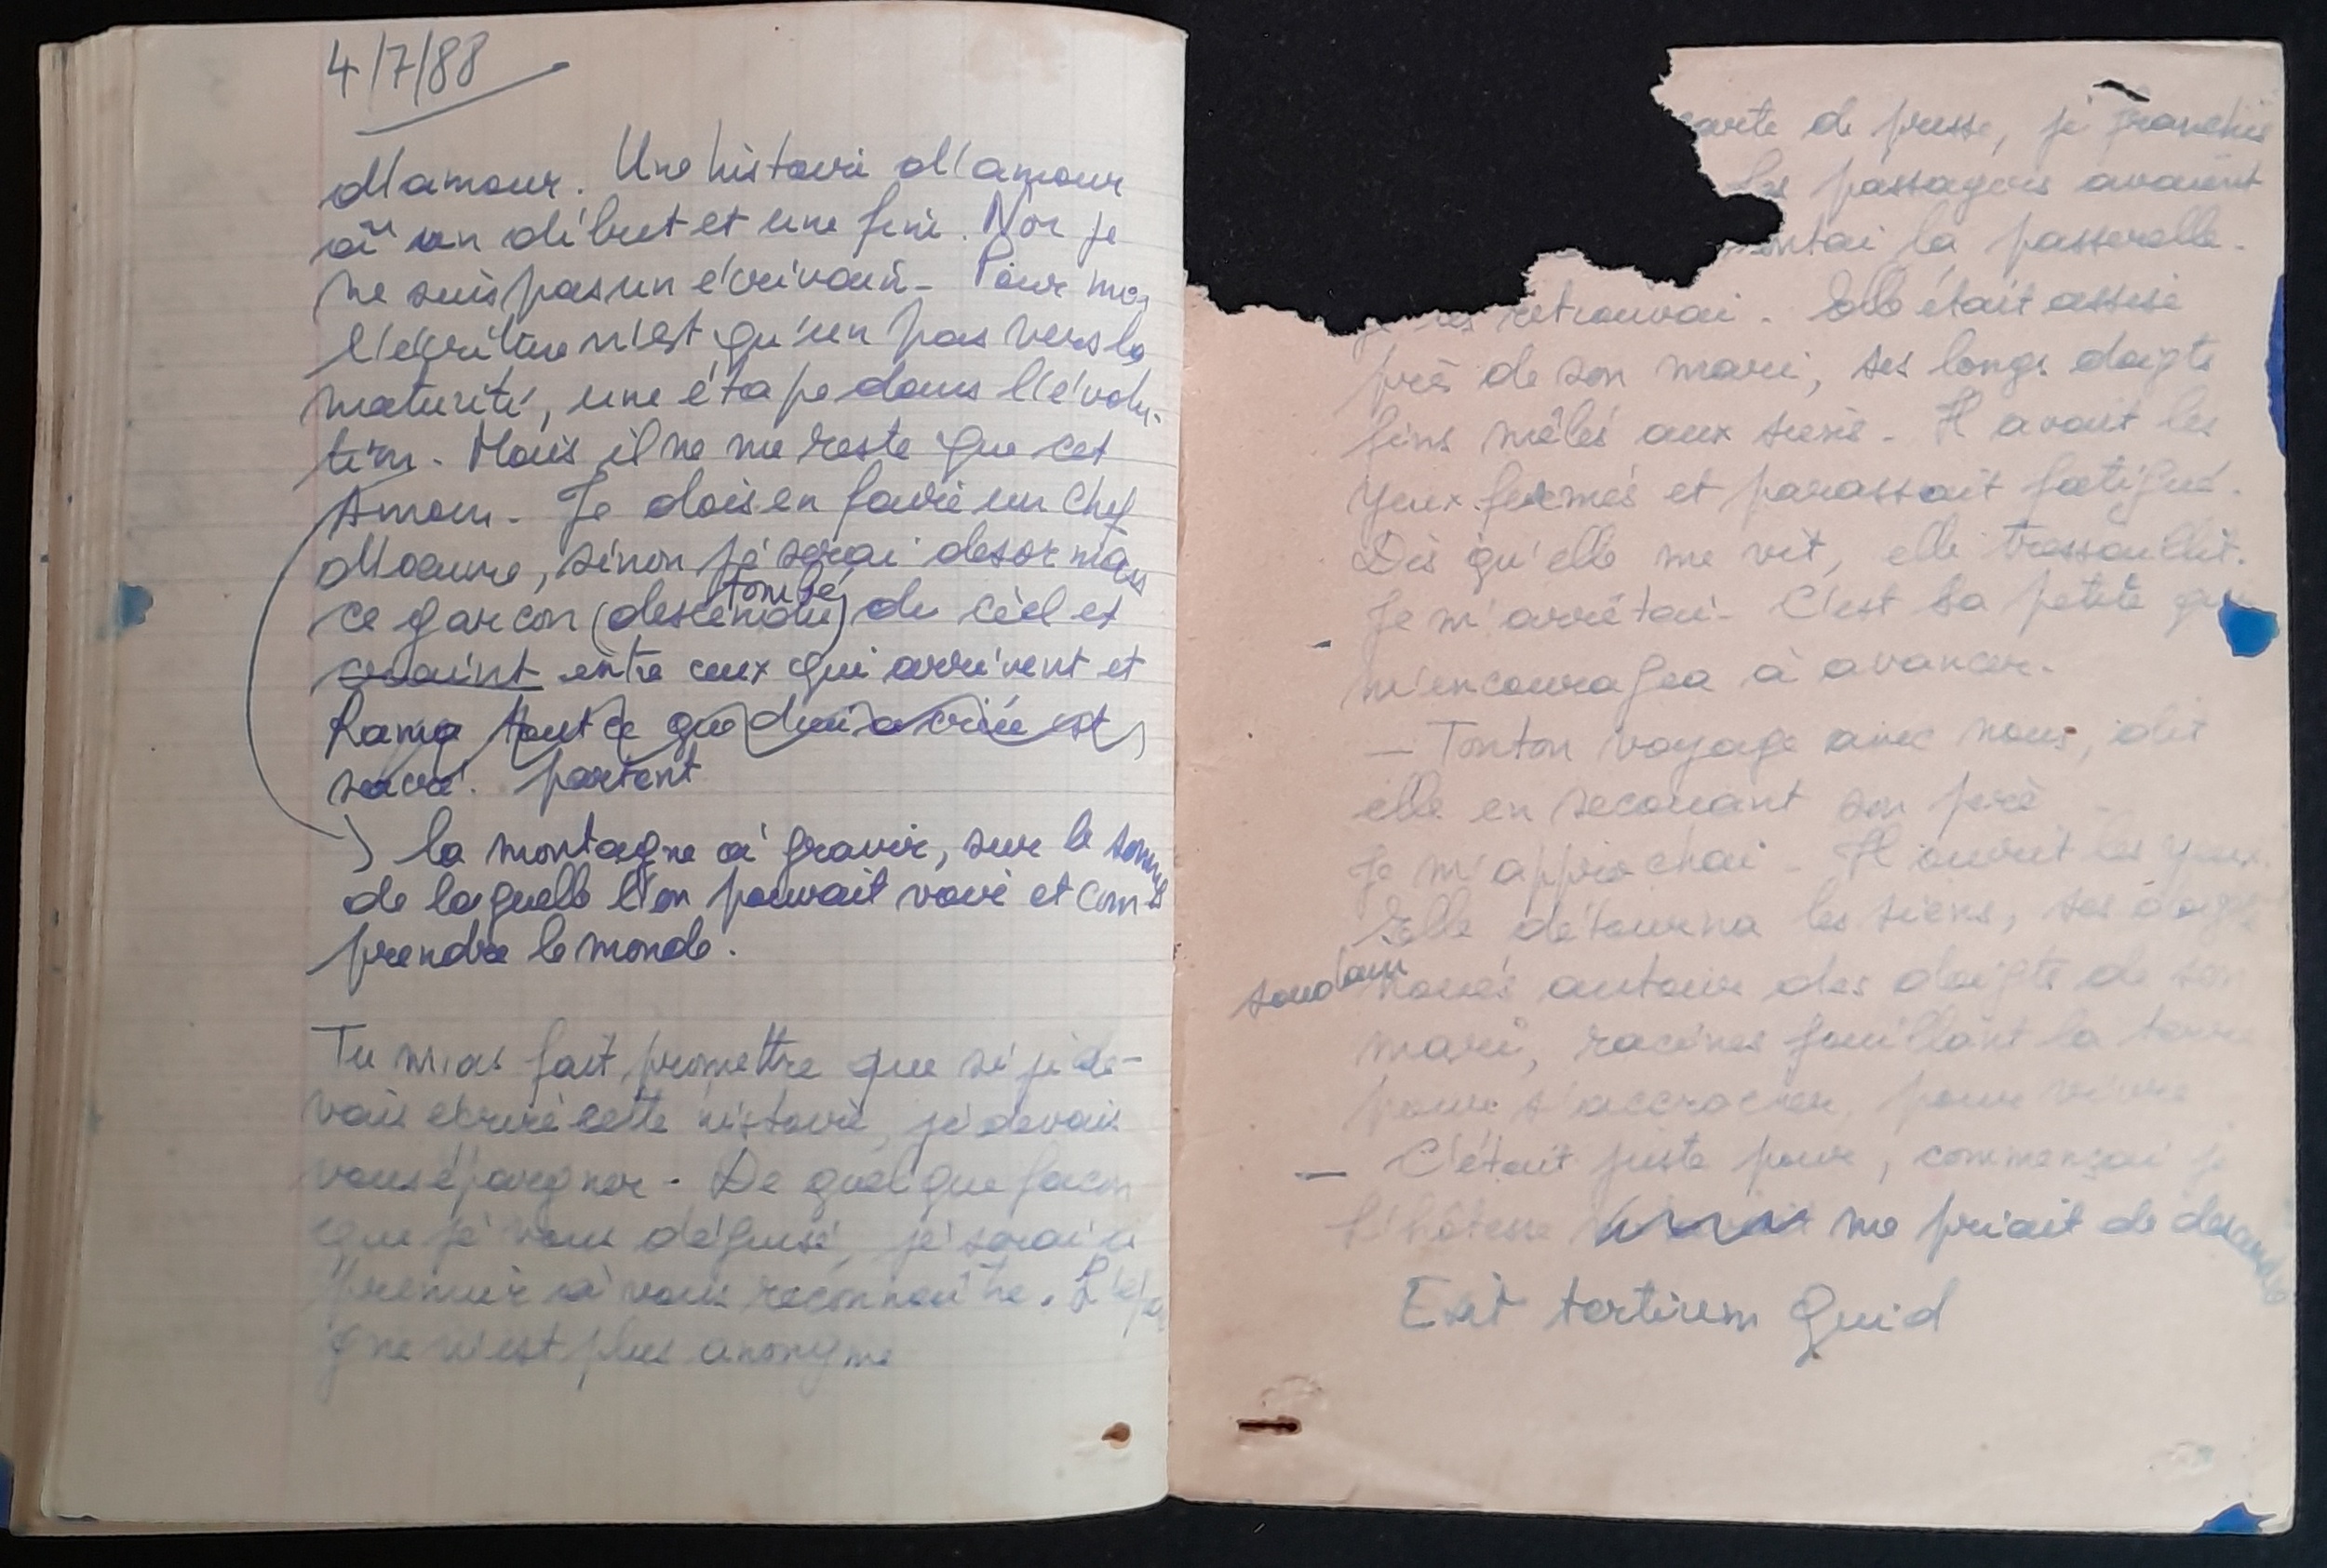 4/7/88
d'amour. Une histoire d'amour
a un début et une fin. Non je
ne suis pas un écrivain. Pour moi
l'écriture n'est qu'un pas vers la
maturité, une étape dans l'évolu-
tion. Mais il ne me reste que cet
Amour. Je dois en faire un chef
d'oeuvre, sinon je serai desormais
tombé
ce garçon (descendu) du ciel et
craint entre ceux qui arrivent et
Rama tout ce que dieu a créé est
sacré. partent
la montagne à gravir, sur le somm
de laquelle l'on pouvait voir et com-
prendre le monde.
Tu m'as fait promettre que si je de-
vais écrire cette histoire, je devais
vous épargner. De quelque facon
que je vous déguise, je serai le
premier à vous reconnaître.
gne n'est plus anonyme
carte de presse, je franchis
les passagers avaient
ontai la passerelle.
je les retrouvai. Elle était assise
près de son mari, ses longs doigts
fins mêlés aux siens. Il avait les
yeux fermés et parassait fatigué.
Dès qu'elle me vit, elle tressaillit.
Je m'arrêtai. C'est la petite qui
m'encouragea à avancer.
— Tonton voyage avec nous, dit
elle en secouant son père
Je m'approchai. Il ouvrit les yeux.
Elle détourna les siens, ses doigts
soudain noués autour des doigts de son
mari, racines fouillant la terre
pour s'accrocher, pour vivre
— C'était juste pour, commençai je
l'hôtesse me priait de descendre
Exit tertium quid